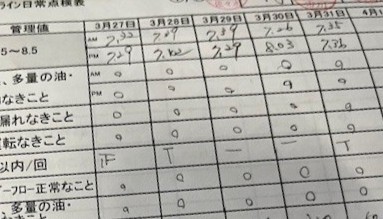 ライン日常点検表
管理値 3月27日 3月28日 3月29日 3月30日 3月31日 4月
5～8.5 AM 7.39 7.35
PM 7.29 7.29 8.03
、多量の油・ AM ○ ○ ○ ○ ○
なきこと PM ○ ○ ○ ○ ○
漏れなきこと ○ ○ ○ ○ ○
運転なきこと ○ ○ ○ ○ ○
以内/回 正 T 一 一 T
フロー正常なこと ○ ○ ○ ○ ○
多量の油・ ○ ○ ○ ○ ○